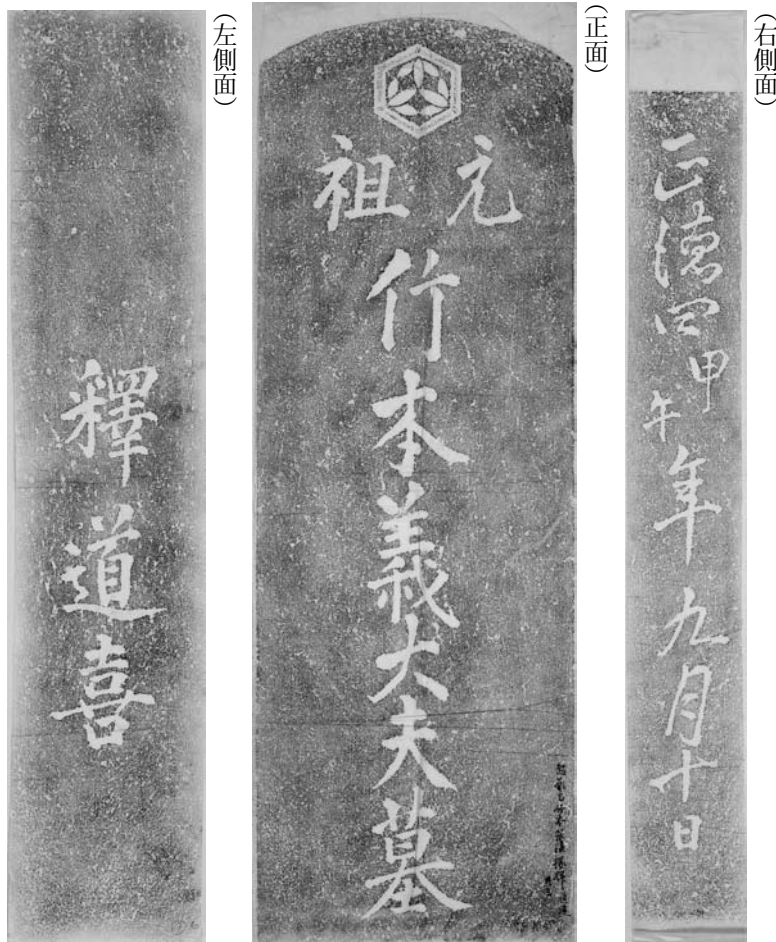 (右側面)
正徳四甲午年九月十日
(正面)
元祖
竹本義太夫墓
(左側面)
釋道喜